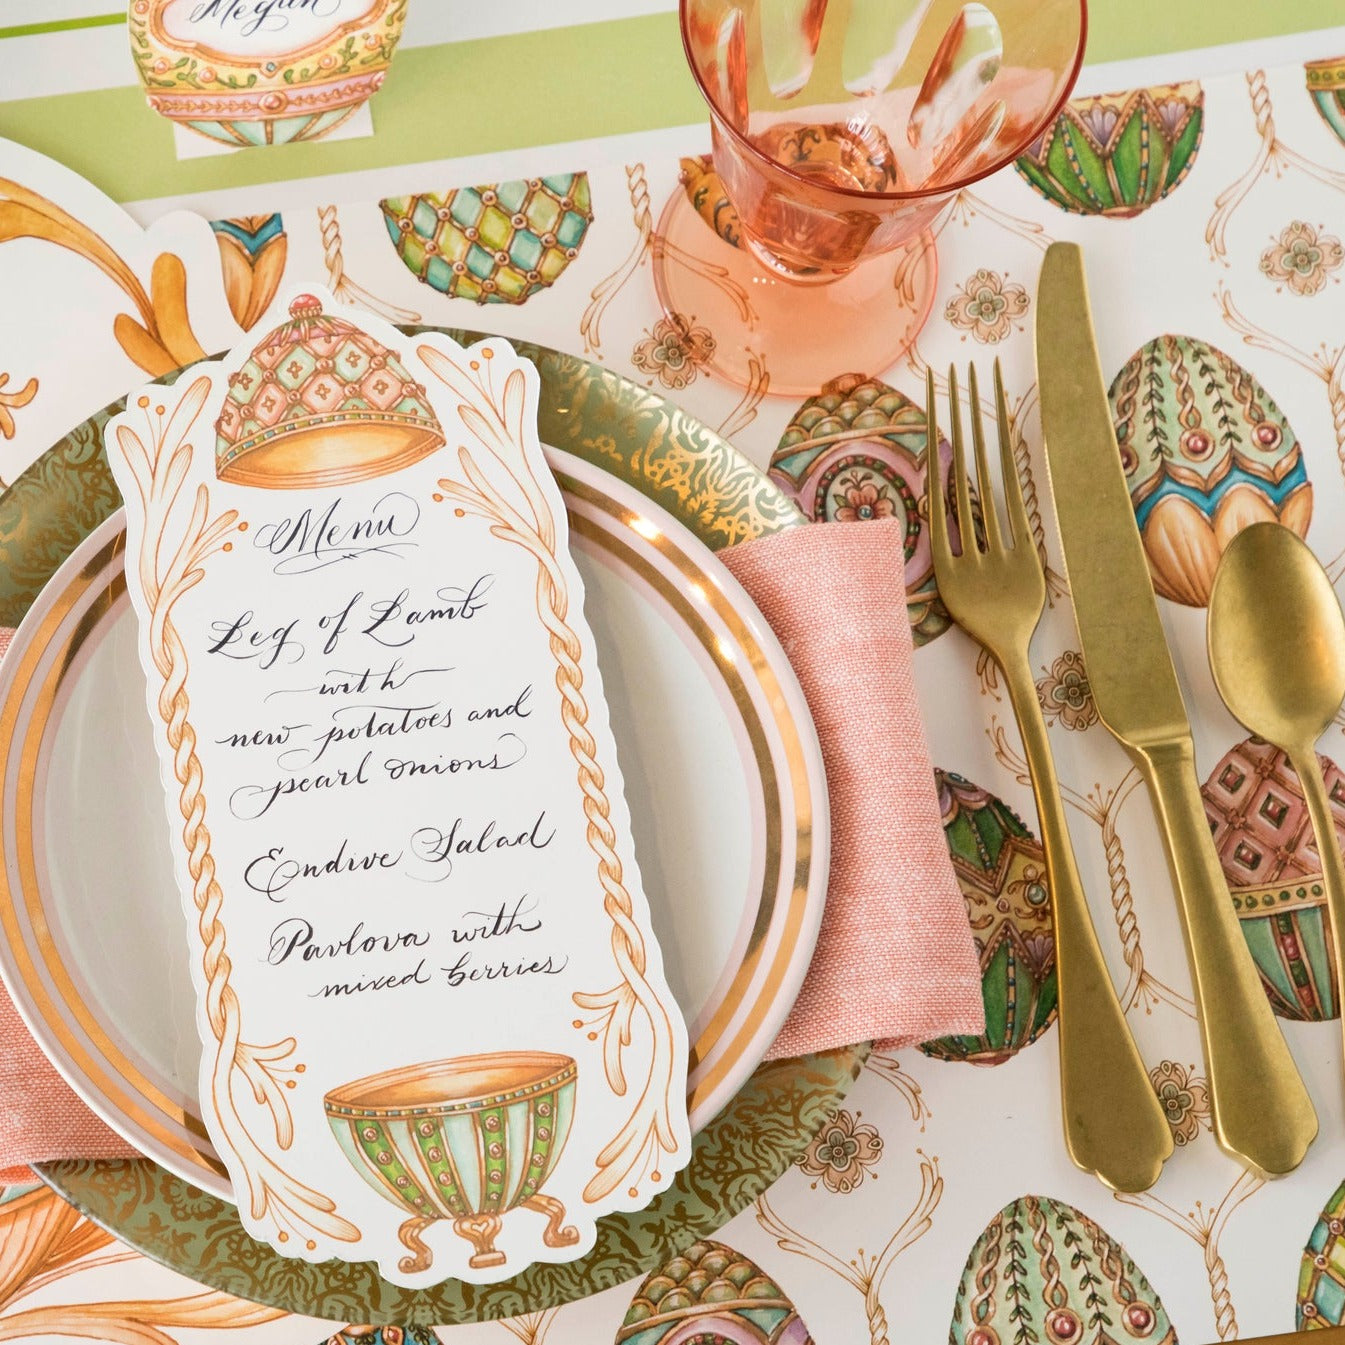 Megan
Menu
Leg of Lamb
with
new potatoes and
pearl onions
Endive Salad
Pavlova with
mixed berries